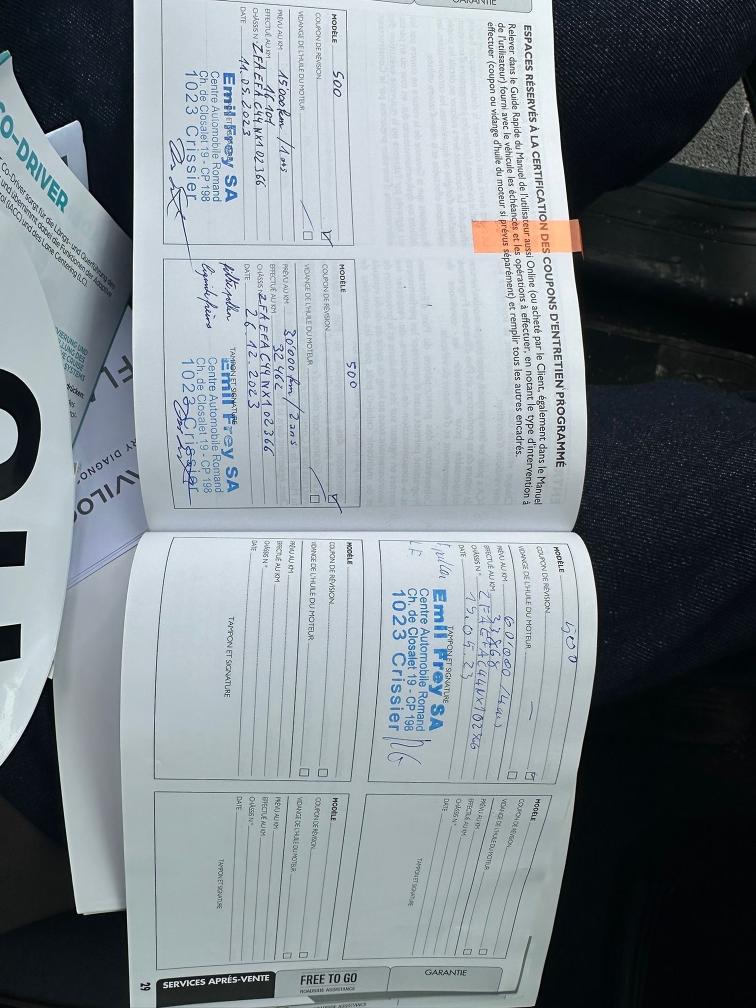 GARANTIE
ESPACES RÉSERVÉS À LA CERTIFICATION DES COUPONS D'ENTRETIEN PROGRAMMÉ
Relever dans le Guide Rapide du Manuel de l'utilisateur aussi Online (ou acheté par le Client, également dans le Manuel
de l'utilisateur) fourni avec le véhicule les échéances et les opérations à effectuer, en notant le type d'intervention à
effectuer (coupon ou vidange d'huile du moteur si prévus séparément) et remplir tous les autres encadrés.
MODÈLE 500
COUPON DE RÉVISION
VIDANGE DE L'HUILE DU MOTEUR
PRÉVU AU KM 15000km / 1 ans
EFFECTUÉ AU KM 16104
CHÂSSIS N° ZFAEFAC44NX102366
DATE 11.05.2023
Emil Frey SA
Centre Automobile Romand
Ch. de Closalet 19 - CP 198
1023 Crissier
MODÈLE 500
COUPON DE RÉVISION
VIDANGE DE L'HUILE DU MOTEUR
PRÉVU AU KM 30'000km / 2 ans
EFFECTUÉ AU KM 32462
CHÂSSIS N° ZFAEFAC44NX102366
DATE 26.12.2023
TAMPON ET SIGNATURE
filtre pollen
liquide freins
Emil Frey SA
Centre Automobile Romand
Ch. de Closalet 19 - CP 198
1023 Crissier
MODÈLE 500
COUPON DE RÉVISION
VIDANGE DE L'HUILE DU MOTEUR
PRÉVU AU KM
EFFECTUÉ AU KM
CHÂSSIS N° ZFAEFAC44NX102366
DATE
TAMPON ET SIGNATURE
Emil Frey SA
Centre Automobile Romand
Ch. de Closalet 19 - CP 198
1023 Crissier
MODÈLE
COUPON DE RÉVISION
VIDANGE DE L'HUILE DU MOTEUR
PRÉVU AU KM
EFFECTUÉ AU KM
CHÂSSIS N°
DATE
TAMPON ET SIGNATURE
MODÈLE
COUPON DE RÉVISION
VIDANGE DE L'HUILE DU MOTEUR
PRÉVU AU KM
EFFECTUÉ AU KM
CHÂSSIS N°
DATE
TAMPON ET SIGNATURE
MODÈLE
COUPON DE RÉVISION
VIDANGE DE L'HUILE DU MOTEUR
PRÉVU AU KM
EFFECTUÉ AU KM
CHÂSSIS N°
DATE
TAMPON ET SIGNATURE
GARANTIE
FREE TO GO
ROADSIDE ASSISTANCE
SERVICES APRÈS-VENTE
29
CO-DRIVER